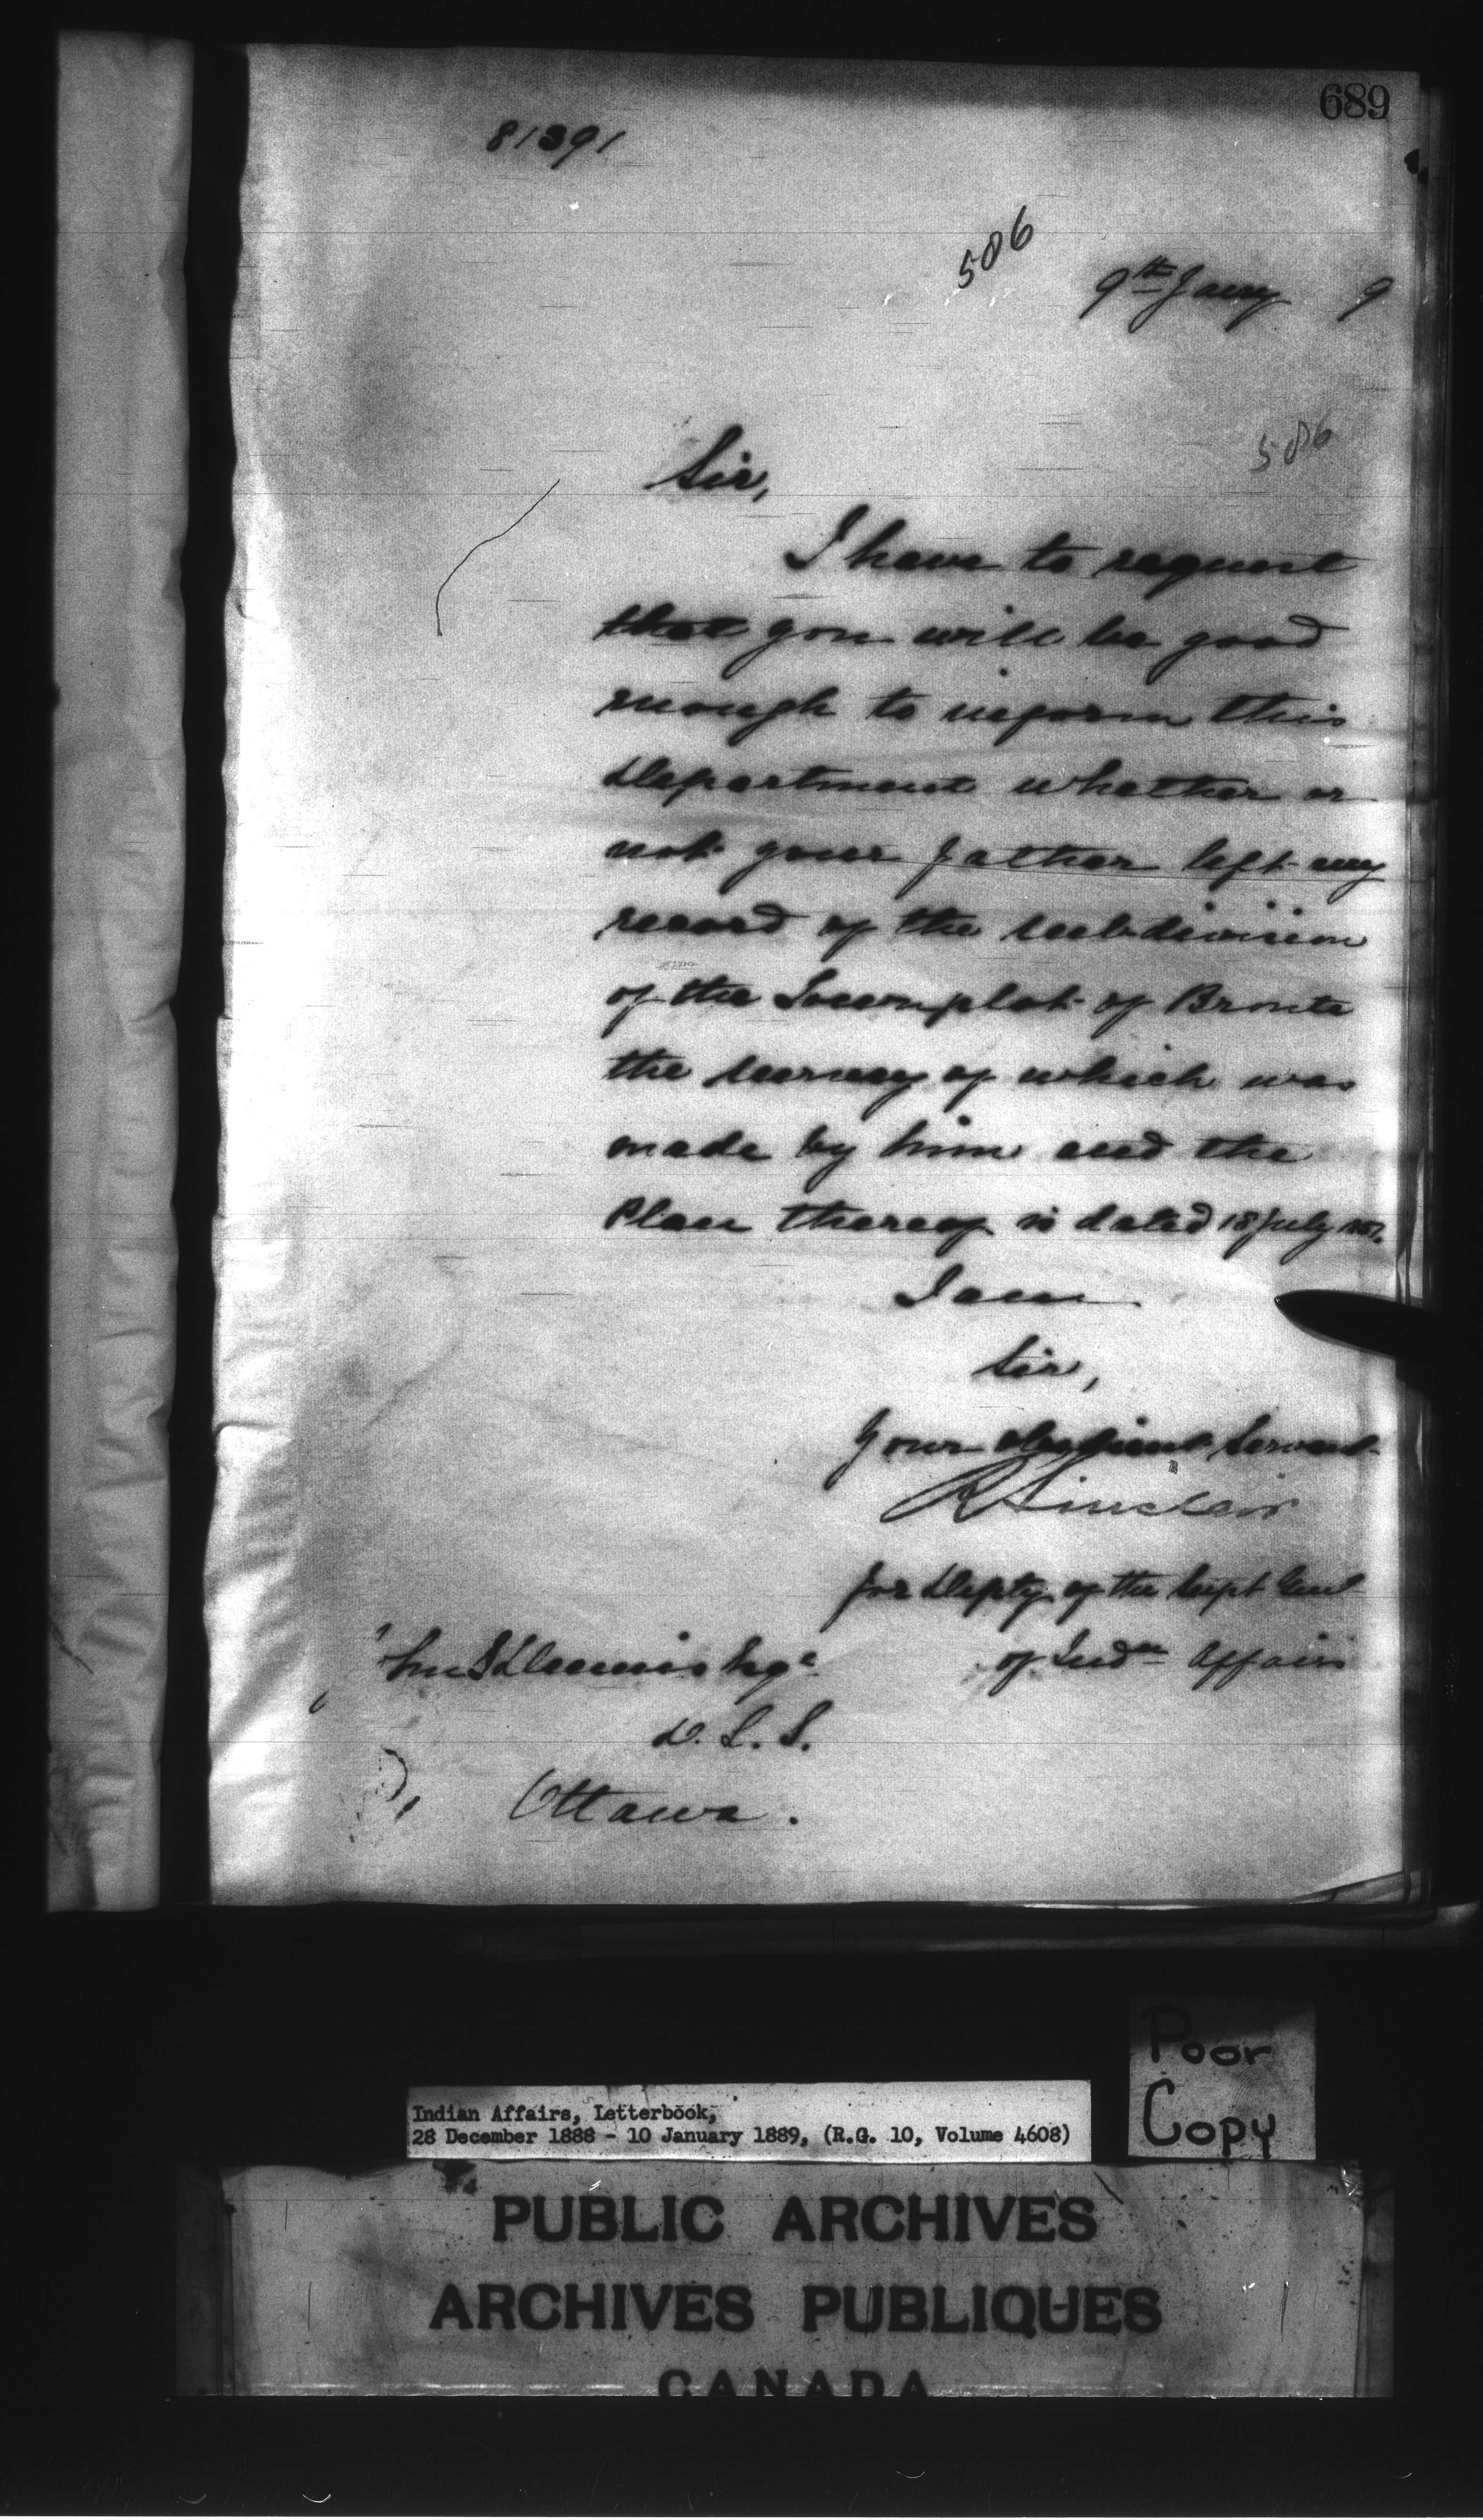 689
81391
586
9th Jany 9
586
Sir,
I have to request
that you will be good
enough to inform this
Department whether or
not your father left any
record of the subdivision
of the Town plot of Bronte
the survey of which was
made by him and the
Plan thereof is dated 18 July
I am
Sir,
Your obedient Servant
R Sinclair
for Depty of the Supt Genl
of Indn Affairs
Dennis Esqe
D. L. S.
Ottawa.
Poor
Copy
Indian Affairs, Letterbook,
28 December 1888 - 10 January 1889, (R.G. 10, Volume 4608)
PUBLIC ARCHIVES
ARCHIVES PUBLIQUES
CANADA